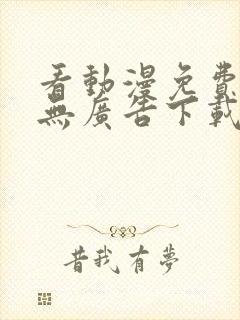 看動漫免費
無廣告下載
昔我有夢